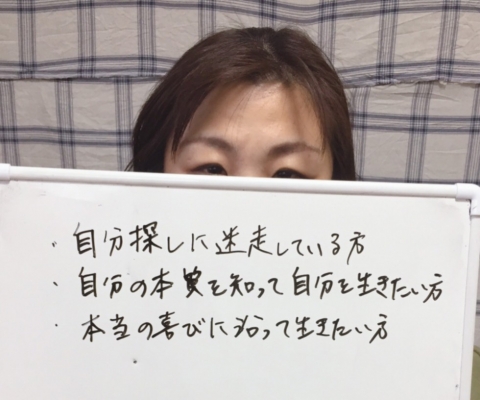 ・自分探しに迷走している方
・自分の本質を知って自分を生きたい方
・本当の喜びに沿って生きたい方